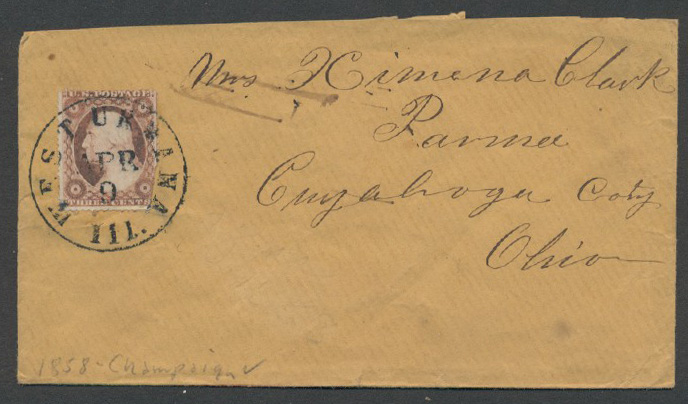 Mrs Ximena Clark
Parma
Cuyahoga Coty
Ohio
U.S. POSTAGE
THREE CENTS
WEST URBANNA
APR
9
Ill.
1858 - Champaign